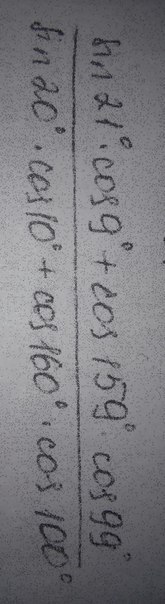 sin 21° · cos 9° + cos 159° · cos 99°
sin 20° · cos 10° + cos 160° · cos 100°